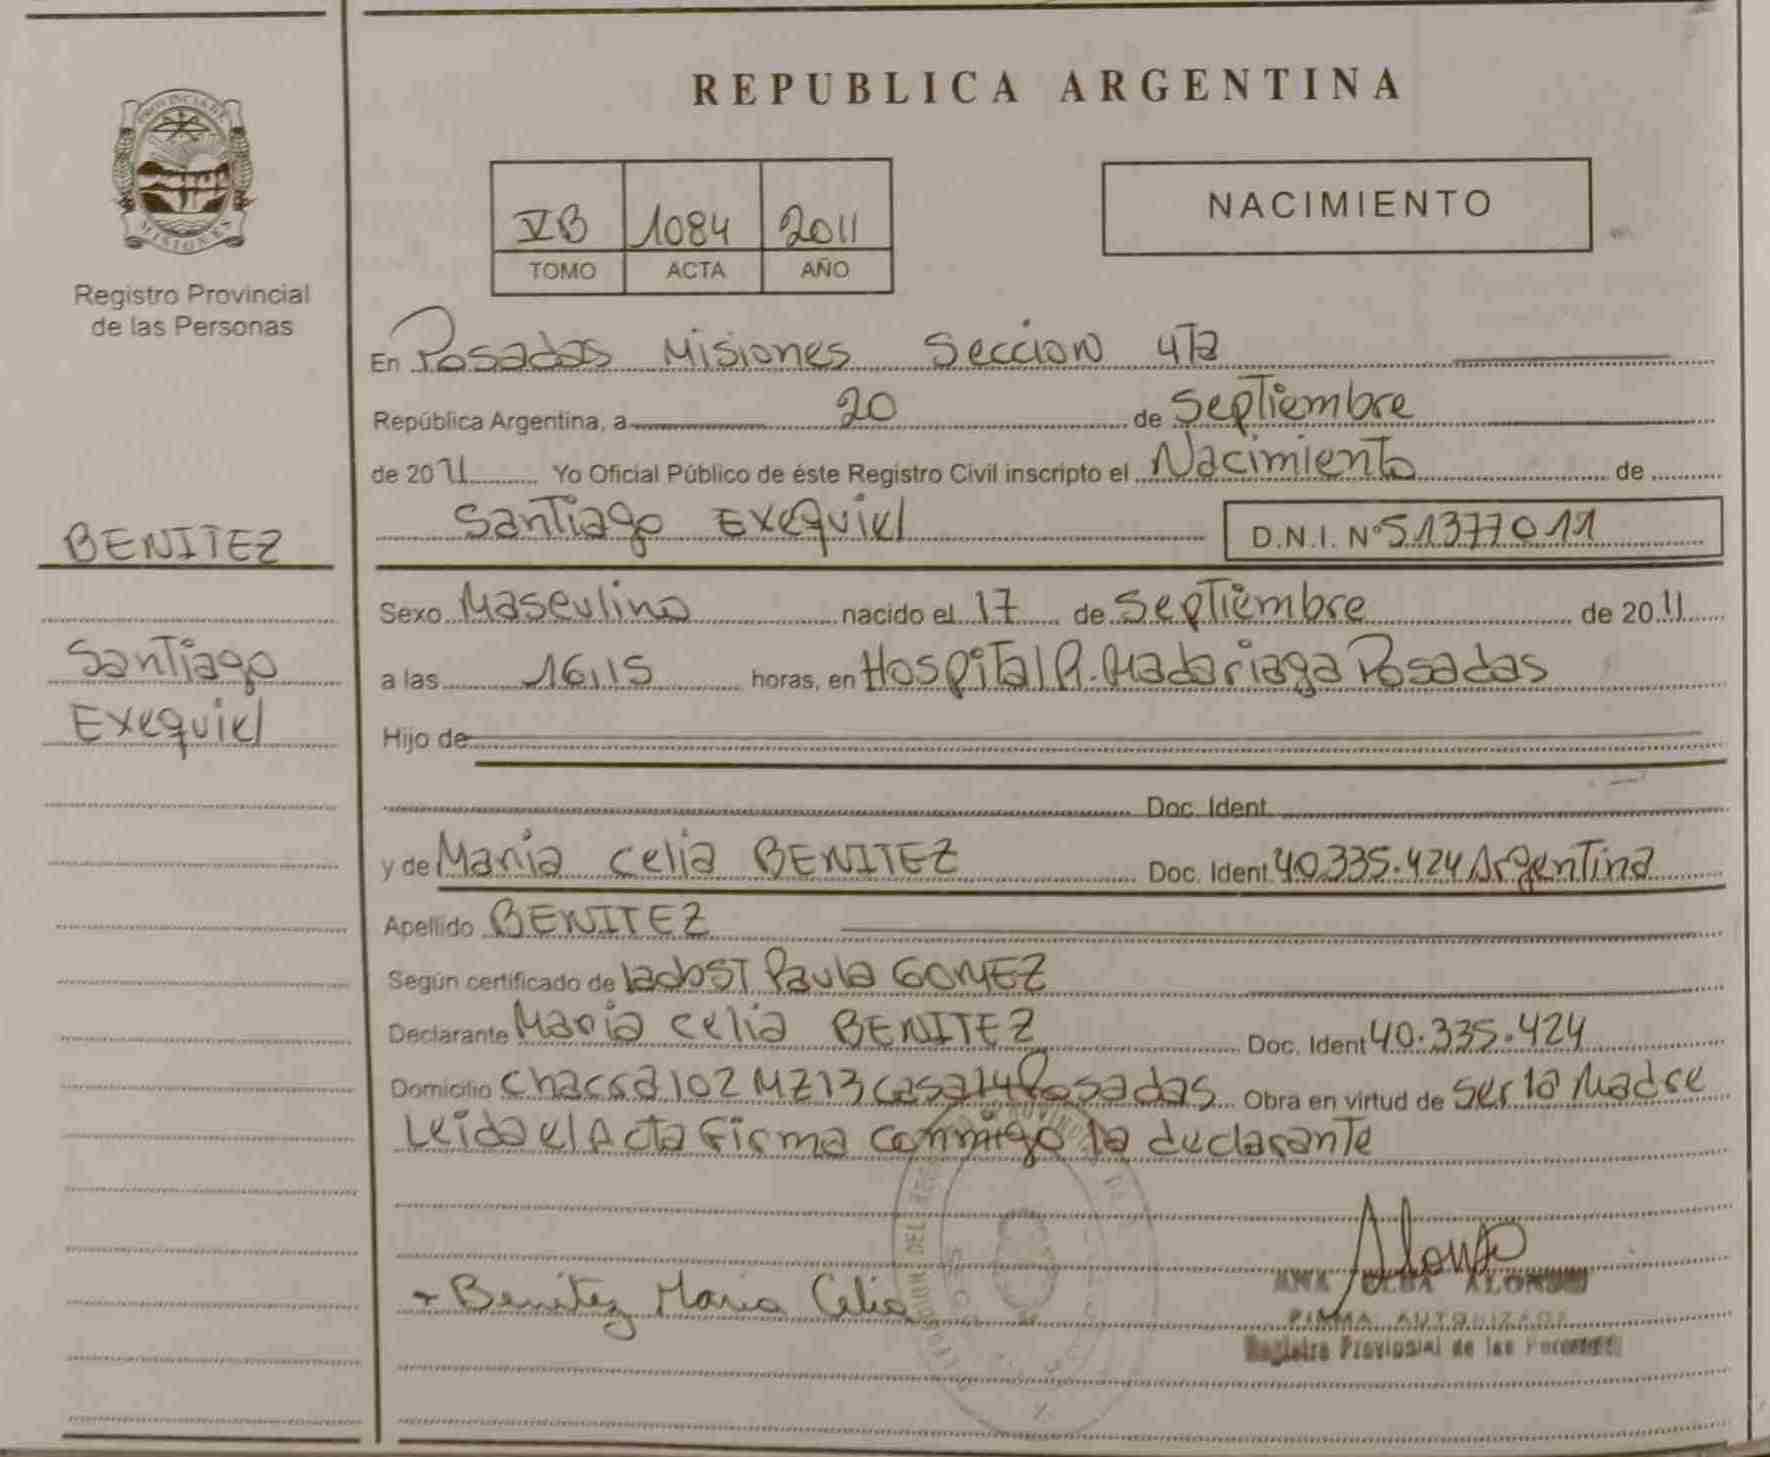 REPUBLICA ARGENTINA
PROVINCIA DE
MISIONES
Registro Provincial
de las Personas
VB 1084 2011
TOMO ACTA AÑO
NACIMIENTO
En Posadas Misiones Seccion 4Ta
República Argentina, a 20 de Septiembre
de 2011 Yo Oficial Público de éste Registro Civil inscripto el Nacimiento de
Santiago Exequiel D.N.I. Nº 51377011
BENITEZ
Santiago
Exequiel
Sexo Masculino nacido el 17 de Septiembre de 2011
a las 16,15 horas, en Hospital R. Madariaga Posadas
Hijo de
Doc. Ident.
y de Maria Celia BENITEZ Doc. Ident. 40.335.424 Argentina
Apellido BENITEZ
Según certificado de la obst Paula GOMEZ
Declarante Maria Celia BENITEZ Doc. Ident 40.335.424
Domicilio Chacra 102 MZ 13 casa 14 Posadas Obra en virtud de ser la Madre
Leida el Acta Firma conmigo la declarante
Benitez Maria Celia
Alonso
ANA ALONSO
FIRMA AUTORIZADA
Registro Provincial de las Personas